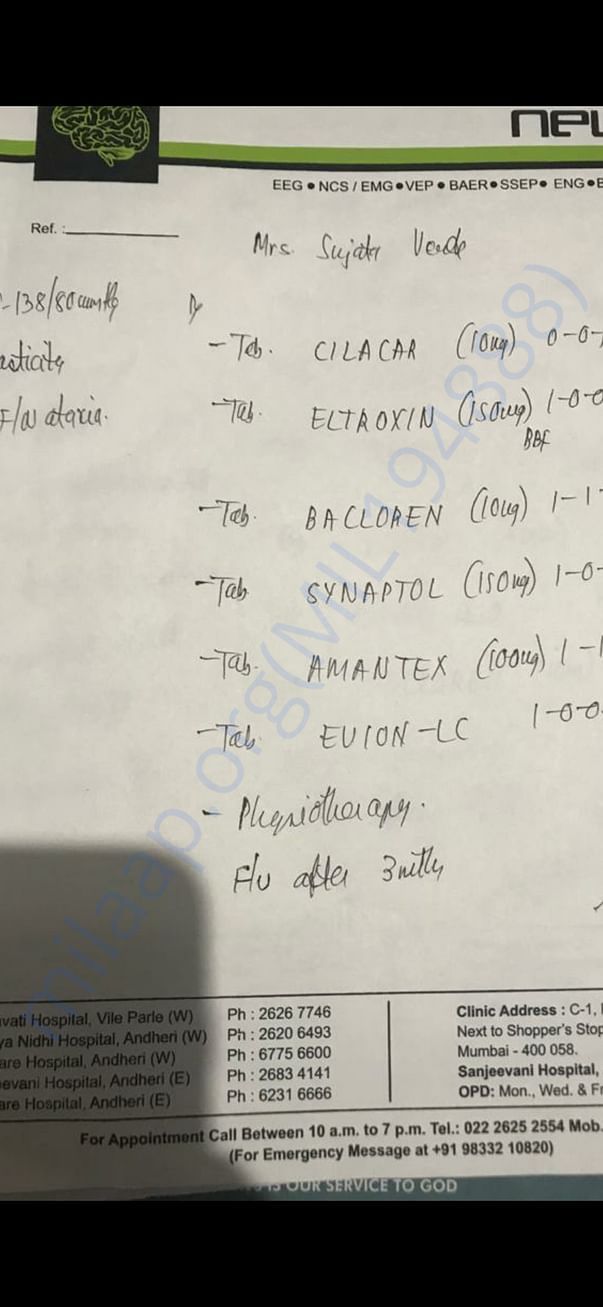 neu
EEG ● NCS / EMG ● VEP ● BAER ● SSEP ● ENG ● E
Ref. :
Mrs. Sujata
-138/80 mmHg
- Tab. CILACAR (10mg) 0-0-
asticity
F/N ataxia.
- Tab. ELTROXIN (150mg) 1-0-0
BBF
- Tab. BACLOREN (10mg) 1-1-
- Tab SYNAPTOL (150mg) 1-0-
- Tab. AMANTEX (100mg) 1-1
- Tab. EVION-LC 1-0-0
- Physiotherapy.
F/U after 3
milaap.org(MIL194888)
vati Hospital, Vile Parle (W) Ph : 2626 7746 Clinic Address : C-1,
ya Nidhi Hospital, Andheri (W) Ph : 2620 6493 Next to Shopper's Stop
are Hospital, Andheri (W) Ph : 6775 6600 Mumbai - 400 058.
eevani Hospital, Andheri (E) Ph : 2683 4141 Sanjeevani Hospital,
are Hospital, Andheri (E) Ph : 6231 6666 OPD: Mon., Wed. & Fr
For Appointment Call Between 10 a.m. to 7 p.m. Tel.: 022 2625 2554 Mob.
(For Emergency Message at +91 98332 10820)
IS OUR SERVICE TO GOD